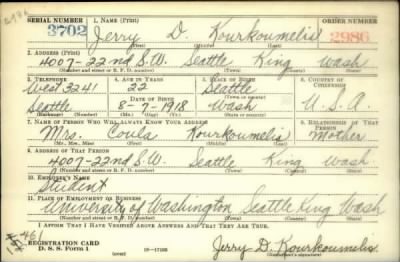 SERIAL NUMBER 1. NAME (Print) ORDER NUMBER
3702 Jerry D. Kourkoumelis 2986
(First) (Middle) (Last)
2. ADDRESS (Print)
4007-22nd S.W. Seattle King Wash
(Number and street or R. F. D. number) (Town) (County) (State)
3. TELEPHONE 4. AGE IN YEARS 5. PLACE OF BIRTH 6. COUNTRY OF CITIZENSHIP
West 3241 22 Seattle
DATE OF BIRTH (Town or county)
Seattle 8-7-1918 Wash U.S.A.
(Exchange) (Number) (Mo.) (Day) (Yr.) (State or country)
7. NAME OF PERSON WHO WILL ALWAYS KNOW YOUR ADDRESS 8. RELATIONSHIP OF THAT PERSON
Mrs. Coula Kourkoumelis Mother
(Mr., Mrs., Miss) (First) (Middle) (Last)
9. ADDRESS OF THAT PERSON
4007-22nd S.W. Seattle King Wash
(Number and street or R. F. D. number) (Town) (County) (State)
10. EMPLOYER'S NAME
Student
11. PLACE OF EMPLOYMENT OR BUSINESS
University of Washington Seattle King Wash
(Number and street or R. F. D. number) (Town) (County) (State)
I AFFIRM THAT I HAVE VERIFIED ABOVE ANSWERS AND THAT THEY ARE TRUE.
REGISTRATION CARD
D. S. S. Form 1 (over) 16-17105 Jerry D. Kourkoumelis